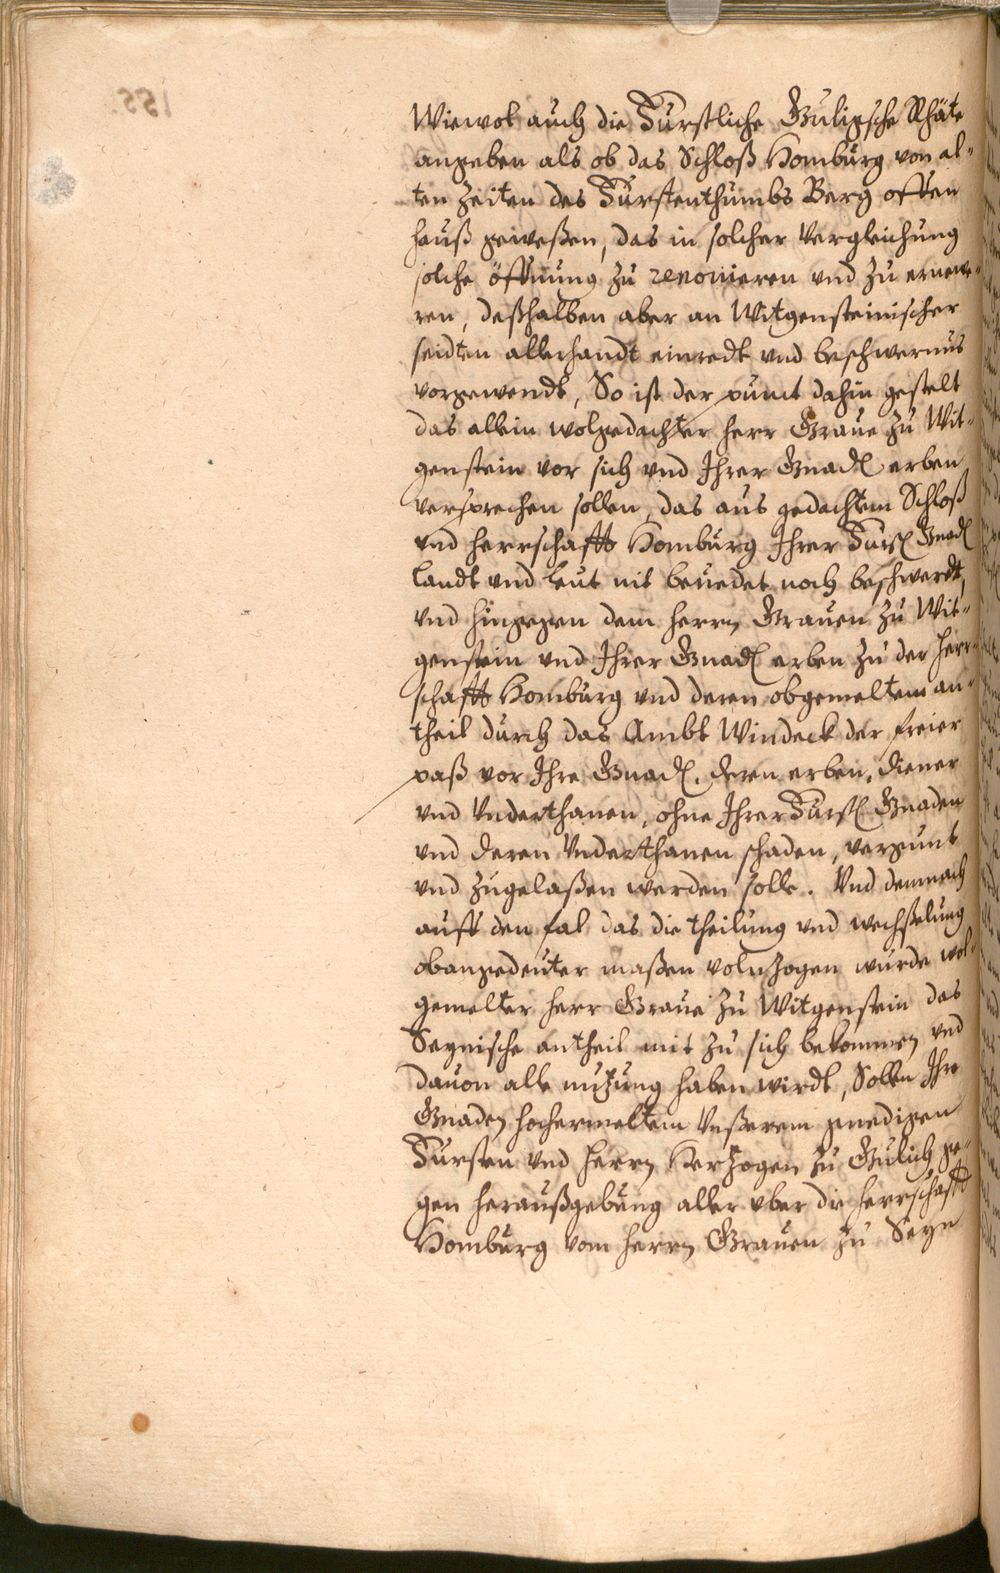 Wiewol auch die Fürstliche Guligsche Rhäte
angeben als ob das Schloß Homburg von al-
ten Zeiten des Fürstenthumbs Berg offen
hauß geweßen, das in solcher Vergleichung
solche öffnung zu renovieren vnd zu ernewe-
ren, deßhalben aber an Witgensteinischer
seidten allerhandt einredt vnd beschwernus
vorgewendt, So ist der punct dahin gestelt
das allein wolgedachter herr Graue zu Wit-
genstein vor sich vnd Ihrer Gnad. erben
versprechen sollen, das aus gedachtem Schloß
vnd herrschafft Homburg Ihrer Fürst. Gnad.
landt vnd leut nit beuedet noch beschwerdt,
vnd hingegen dem herrn Grauen zu Wit-
genstein vnd Ihrer Gnad. erben zu der herr-
schafft Homburg vnd deren obgemeltem an-
theil durch das Ambt Windeck der freier
paß vor Ihre Gnad. deren erben, diener
vnd Vnderthanen, ohne Ihrer Fürst. Gnaden
vnd deren Vnderthanen schaden, vergunt
vnd zugelaßen werden solle. Vnd demnach
auff den fal das die theilung vnd wechßelung
obangedeuter maßen volnzogen wurde wol-
gemelter herr Graue zu Witgenstein das
Seynische antheil mit zu sich bekommen vnd
dauon alle nutzung haben wirdt, Sollen Ihre
Gnaden hochermeltem Vnßerem gnedigen
Fürsten vnd herrn Hertzogen zu Gulich ge-
gen heraußgebung aller vber die herrschafft
Homburg vom herrn Grauen zu Seyn